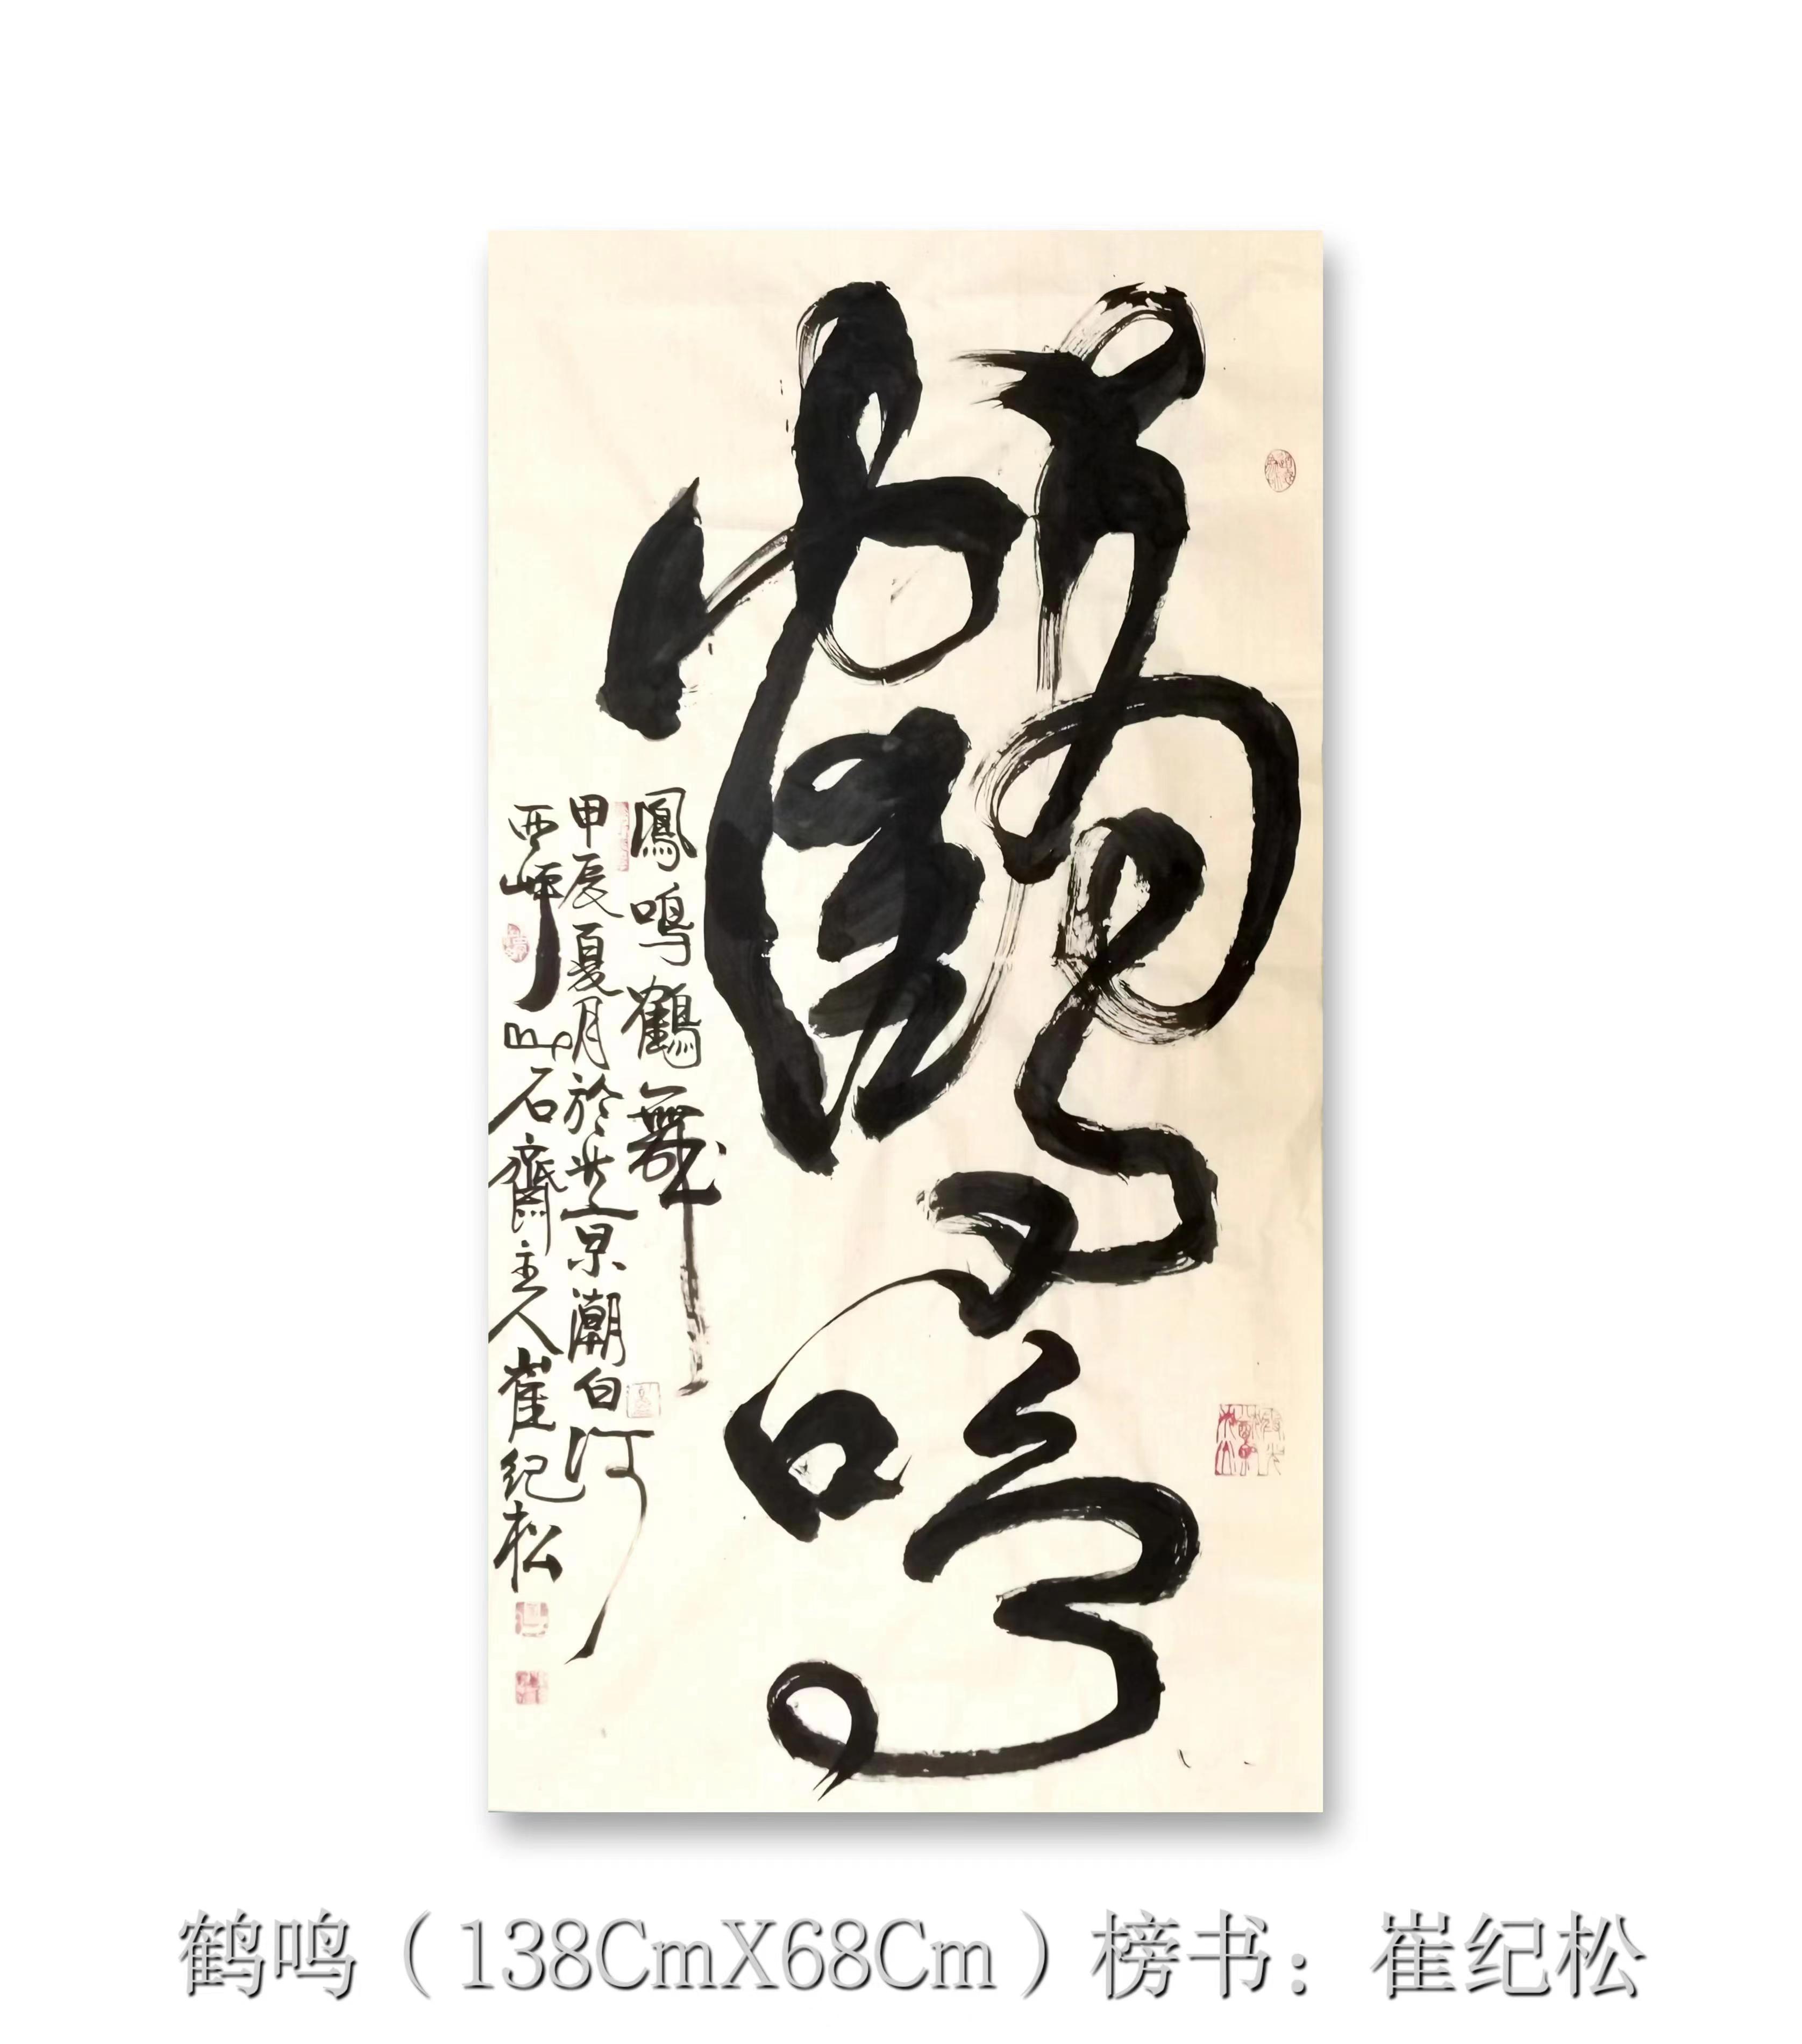 鶴鳴
鳳鳴鶴舞
甲辰夏月於北京潮白河
西岸
石齋主人崔纪松
鹤鸣（138CmX68Cm）榜书：崔纪松